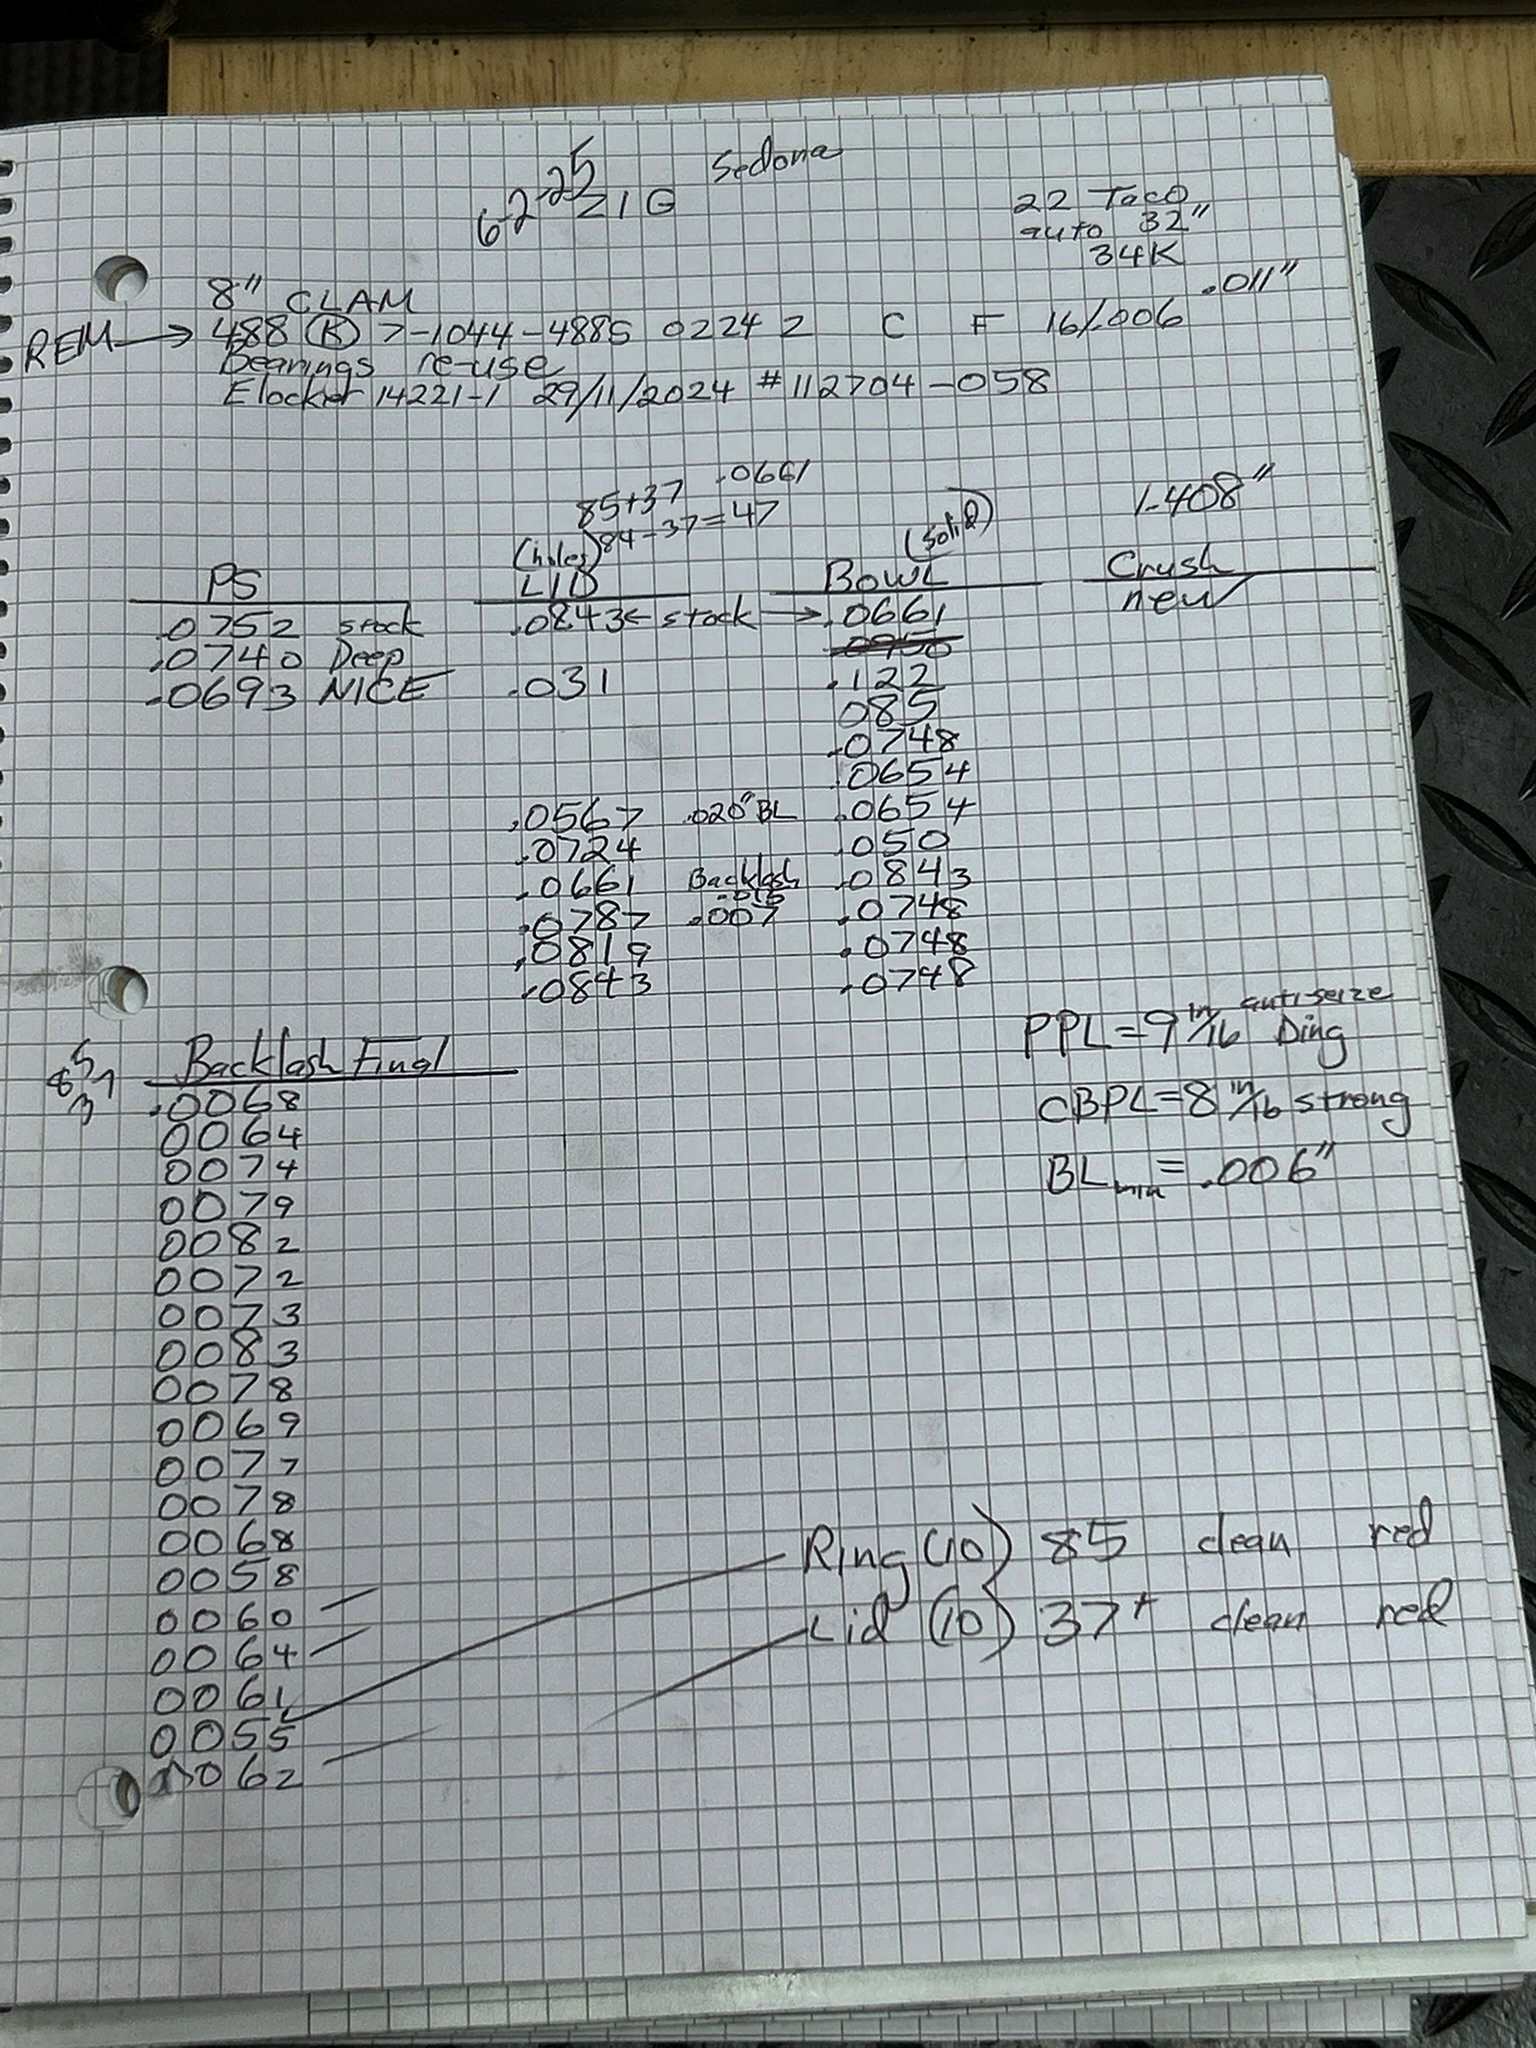 6-2-25
ZIG Sedona
22 Taco
auto 32"
34K
8" CLAM
.011"
REM → 488 (R) 7-1044-488S 0224 2 C F 16/.006
Bearings re-use
Elocker 14221-1 29/11/2024 #112704-058
85+37 .0661
84-37=47
1.408"
(holes) (solid)
PS LID BOWL Crush
.0752 stock .0843 ← stock → .0661 new
.0740 Deep
.0693 NICE .031 .122
085
.0748
.0654
.0567 .020" BL .0654
.0724 .050
.0661 Backlash .0843
.0787 .007 .0748
.0819 .0748
.0843 .0748
PPL=9 in/16 antiseize Ding
CBPL=8 in/16 strong
BLmin=.006"
Backlash Final
.0068
0064
0074
0079
0082
0072
0073
0083
0078
0069
0077
0078
0068
0058
0060
0064
0061
0055
0062
Ring (10) 85 clean red
Lid (10) 37+ clean red